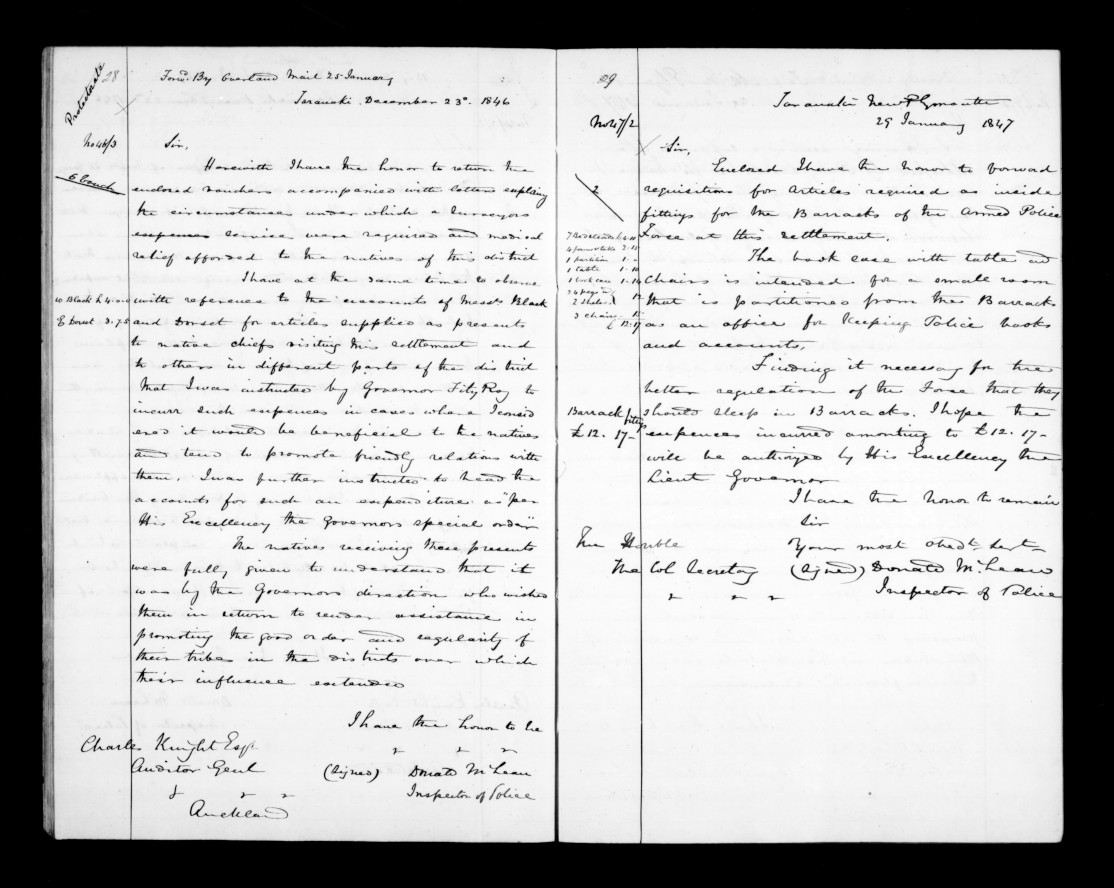 28
Forwd. By Overland Mail 25 January
Taranaki. December 23d. 1846
No 46/3
Sir,
Herewith I have the honor to return the
enclosed vouchers accompanied with letters explaing
the circumstances under which a Surveyors
expenses service were required and medical
relief afforded to the natives of this district
I have at the same time to observe
with reference to the accounts of Messrs Black
and Dorset for articles supplied as presents
to native chiefs visiting this settlement and
to others in different parts of the district
that I was instructed by Governor Fitz,Roy to
incurr such expences in cases where I consid
ered it would be beneficial to the natives
and tend to promote friendly relations with
them. I was further instructed to head the
accounts for such an expenditure as "per
His Excellency the Governors special order"
The natives receiving these presents
were fully given to understand that it
was by the Governors direction who wished
them in return to render assistance in
promoting the good order and regularity of
their tribes in the districts over which
their influence extended
I have the honor to be
Charles Knight Esqr.
Auditor Genl (Signed) Donald McLean
Inspector of Police
Auckland
W Black £ 4.
E Dorset 3.7.5
29
Taranaki New Plymouth
29 January 1847
No 47/2
Sir,
Enclosed I have the honor to forward
2
requisitions for articles required as inside
fittings for the Barracks of the Armed Police
Force at this settlement.
The book case with table and
Chairs is intended for a small room
that is partitioned from the Barracks
as an office for keeping Police books
and accounts.
7 Bedsteads
1 partition
1 table
1 book case 1.10
3 chairs 15
£12.17
Finding it necessary for the
better regulation of the Force that they
should sleep in Barracks. I hope the
expences incurred amonting to £12. 17-
will be authorized by His Excellency the
Lieut Governor
Barrack fittings
£12. 17-
I have the honor to remain
Sir
The Honble Your most obedt. Servt
The Col Secretary (Signed) Donald McLean
Inspector of Police